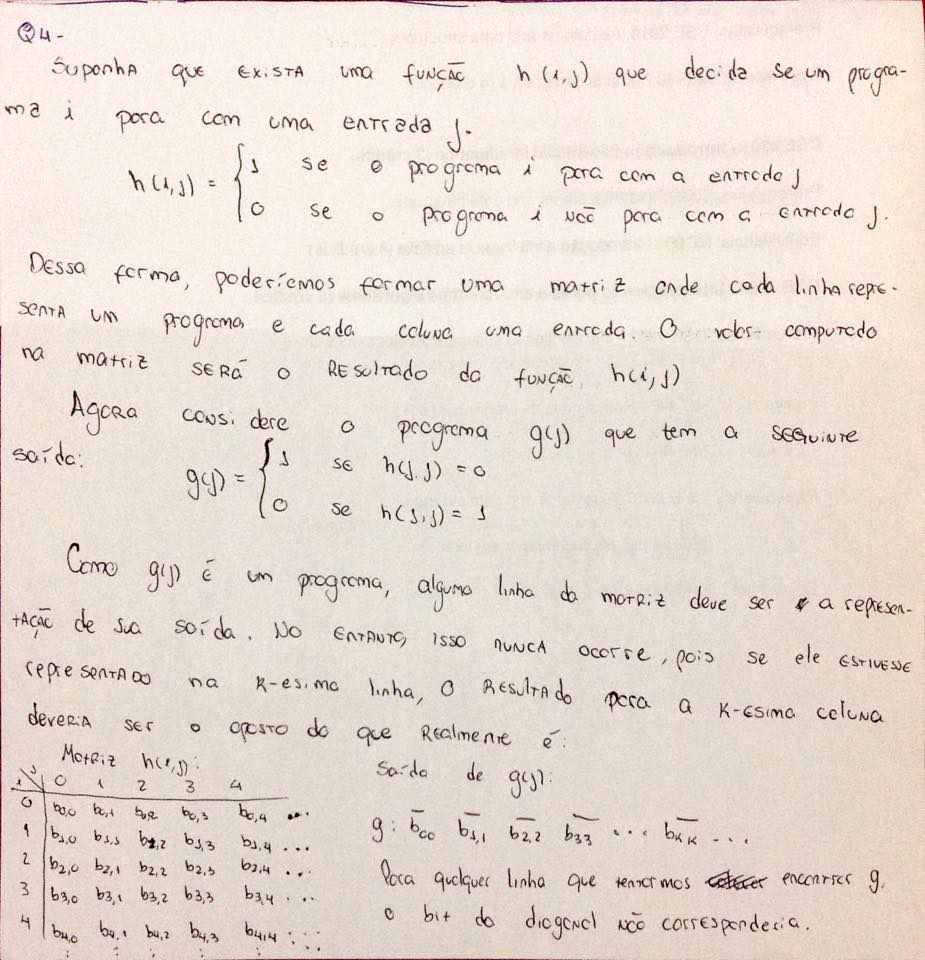 Q4-
Suponha que exista uma função h(i,j) que decida se um progra-
ma i para com uma entrada j.
h(i,j) = { 1 se o programa i para com a entrada j
0 se o programa i não para com a entrada j.
Dessa forma, poderíamos formar uma matriz onde cada linha repre-
senta um programa e cada coluna uma entrada. O valor computado
na matriz será o resultado da função h(i,j)
Agora considere o programa g(j) que tem a seguinte
saída:
g(j) = { 1 se h(j,j) = 0
0 se h(j,j) = 1
Como g(j) é um programa, alguma linha da matriz deve ser a represen-
tação de sua saída. No entanto, isso nunca ocorre, pois se ele estivesse
representado na k-esima linha, o resultado para a k-esima coluna
deveria ser o oposto do que realmente é:
Matriz h(i,j):
i\j 0 1 2 3 4
0 b0,0 b0,1 b0,2 b0,3 b0,4 ...
1 b1,0 b1,1 b1,2 b1,3 b1,4 ...
2 b2,0 b2,1 b2,2 b2,3 b2,4 ...
3 b3,0 b3,1 b3,2 b3,3 b3,4 ...
4 b4,0 b4,1 b4,2 b4,3 b4,4 ...
Saída de g(j):
g: b̅00 b̅1,1 b̅2,2 b̅33 ... b̅KK ...
Para qualquer linha que tentarmos encontrar g,
o bit da diagonal não corresponderia.